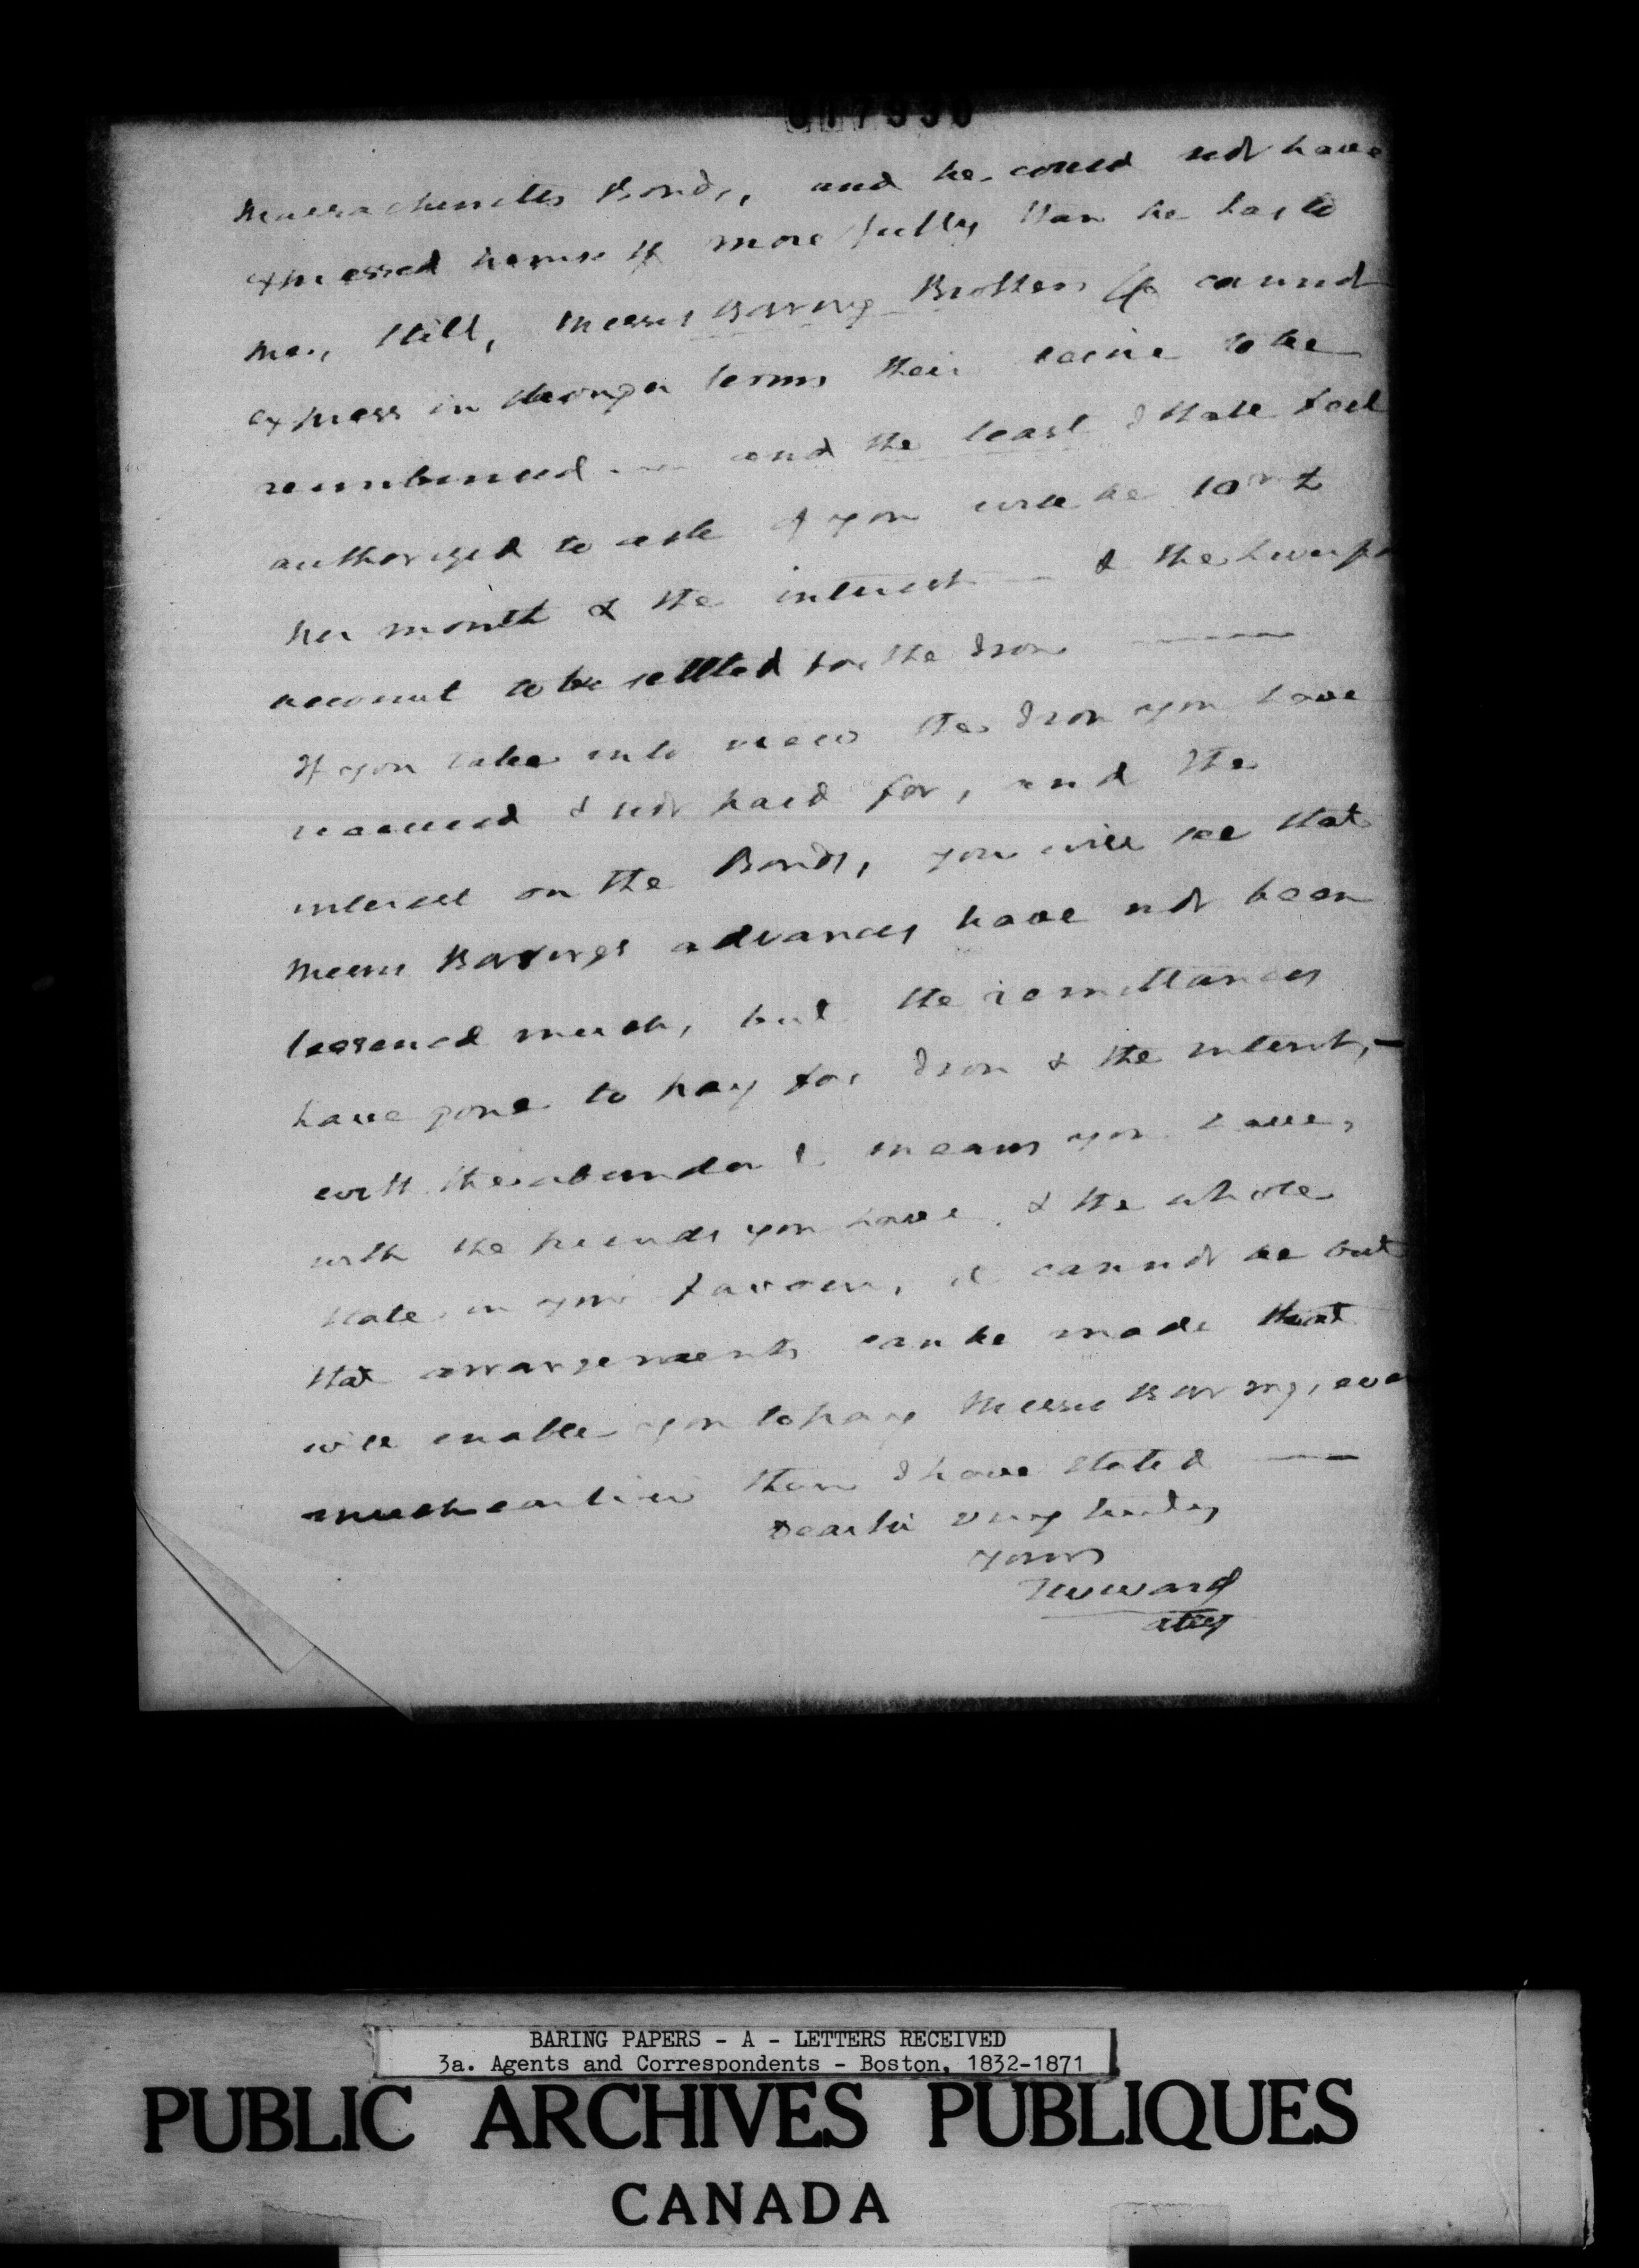 017930
Massachusetts Bonds, and he could not have
expressed himself more fully than he has to
me, still, Messrs Baring Brothers & Co cannot
express in stronger terms their desire to be
reimbursed — and the least I shall feel
authorized to ask of you will be 10 m £
per month & the interest — & the Liverpo
account to be settled for the Iron ———
If you take into view the Iron you have
received & not paid for, and the
interest on the Bonds, you will see that
Messrs Barings advances have not been
lessened much, but the remittances
have gone to pay for Iron & the interest, —
with the abundant means you have,
with the friends you have & the whole
State in your favour, it cannot be but
that arrangements can be made that
will enable you to pay Messrs Baring, eve
much earlier than I have stated ——
Dear Sir very truly
yours
TWWard
atty
BARING PAPERS - A - LETTERS RECEIVED
3a. Agents and Correspondents - Boston, 1832-1871
PUBLIC ARCHIVES PUBLIQUES
CANADA